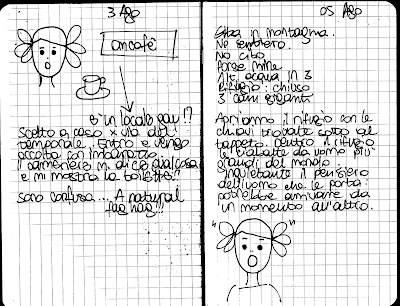 3 Ago
oncafè
è un locale gay !?
Scelto a caso x via del
temporale. Entro e vengo
accolta con imbarazzo
il cameriere mi dice qualcosa
e mi mostra la toilette!?
Sono confusa... A natural
fag hag!!!
05 Ago
Gita in montagna.
No sentiero.
No cibo
Forse mine
acqua in 3
Rifugio: chiuso
3 cani giganti
Apriamo il rifugio con le
chiavi trovate sotto al
tappeto. Dentro il rifugio
ciabatte da uomo più
grandi del mondo.
Inquietante il pensiero
dell'uomo che le porta:
potrebbe arrivare da
un momento all'altro.